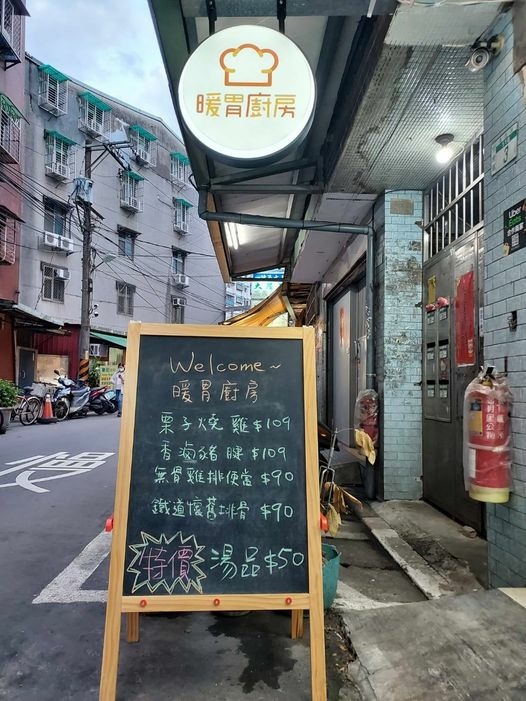 暖胃廚房
Welcome~
暖胃廚房
栗子燒雞$109
香滷豬腱$109
無骨雞排便當$90
鐵道懷舊排骨$90
特價 湯品$50
慢
Uber
Eats